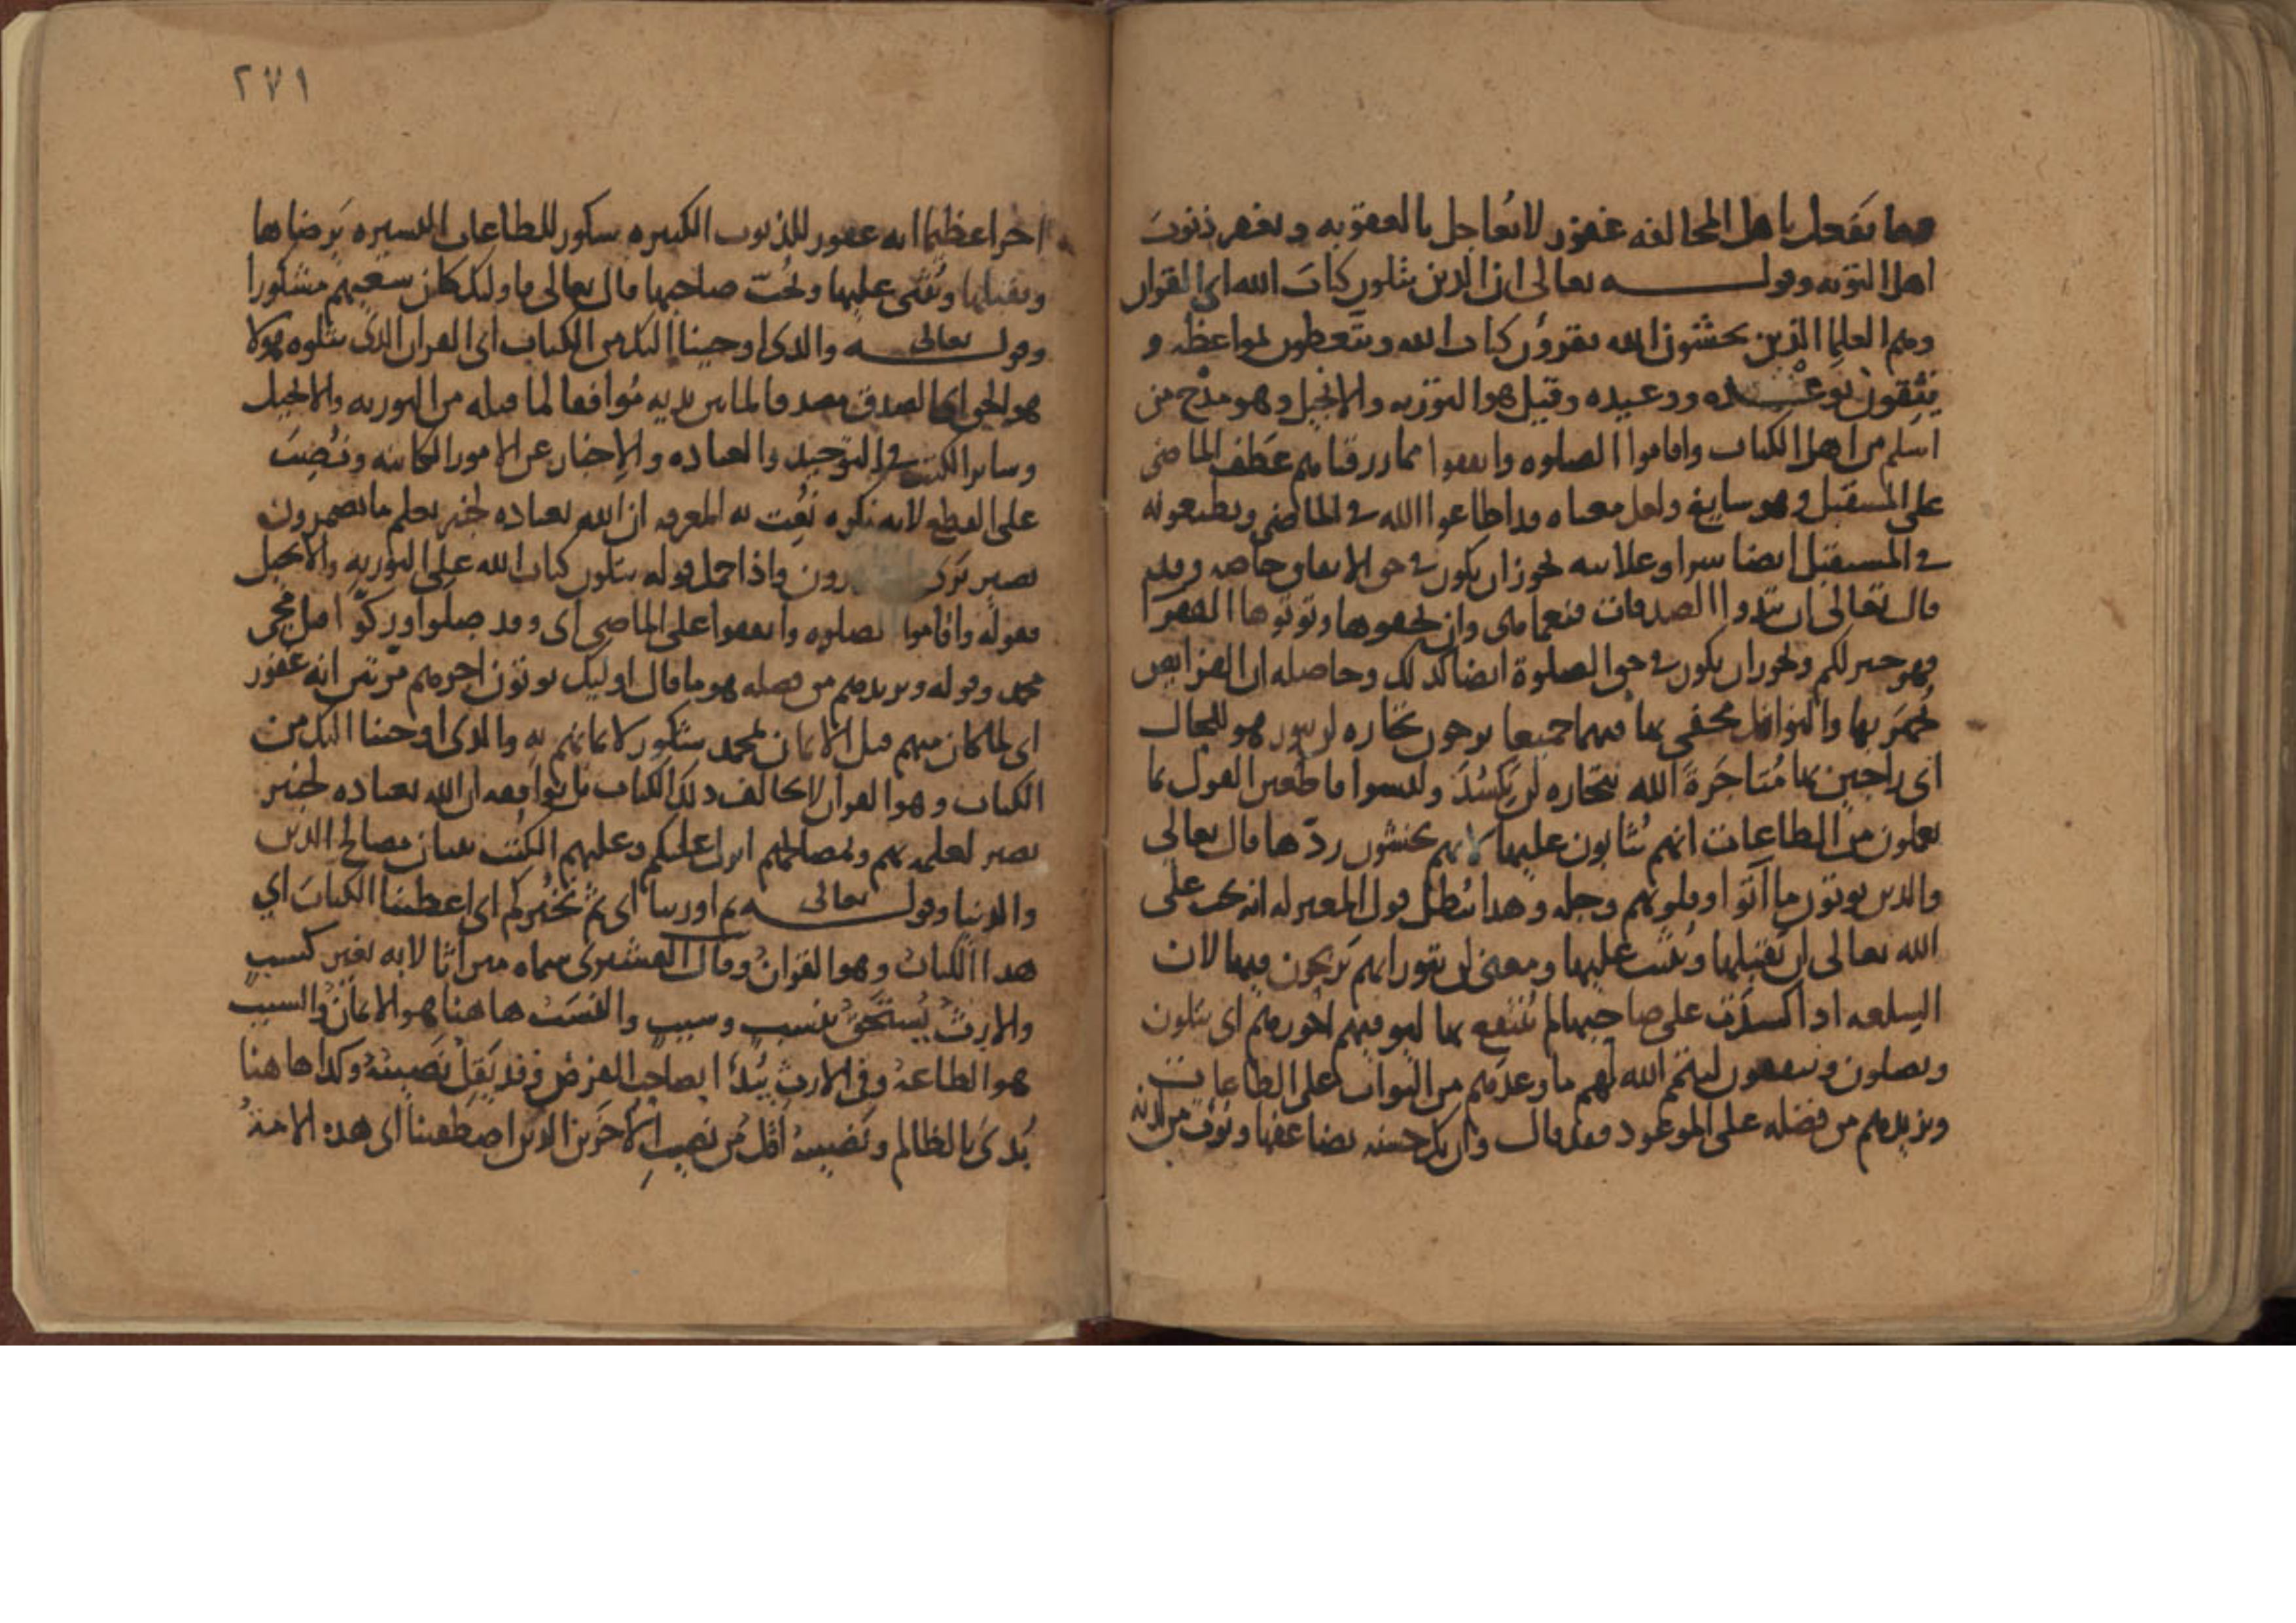 فيما يفعل باهل المخالفه غفور لا يعاجل بالعقوبه ويغفر ذنوب
اهل التوبه وقوله تعالى ان الذين يتلون كتاب الله اي القران
وهم العلما الذين يخشون الله يقرؤن كتاب الله ويتعظون بمواعظه و
يثقون بوعده ووعيده وقيل هو التوريه والانجيل وهو مدح من
اسلم من اهل الكتاب واقاموا الصلوه وانفقوا مما رزقناهم عطف الماضي
على المستقبل وهو سايغ ولعل معناه قد اطاعوا الله في الماضي ويطيعونه
في المستقبل ايضا سرا وعلانيه يجوز ان يكون في حق الانفاق خاصه وقد
قال تعالى ان تبدوا الصدقات فنعما هي وان تخفوها وتوتوها الفقرا
فهو خير لكم ويجوز ان يكون في حق الصلوة ايضا كذلك وحاصله ان الفرايض
يجهر بها والنوافل مخفى بها فيهما جميعا يرجون تجاره لن تبور هو للحال
اي راجين بها متاجرة الله تجاره لن يكسد وليسوا قاطعين القول بما
يعملون من الطاعات انهم يثابون عليها لانهم يخشون ردها قال تعالى
والذين يوتون ما آتوا وقلوبهم وجله وهذا يبطل قول المعتزله انه يجب على
الله تعالى ان يقبلها ويثيب عليها ومعنى لن تبور انهم يربحون فيها لان
السلعه اذا كسدت على صاحبها لم ينتفع بها ليوفيهم اجورهم اي يتلون
ويصلون وينفقون ليتم الله لهم ما وعدهم من الثواب على الطاعات
ويزيدهم من فضله على الموعود فقد قال وان تك حسنه يضاعفها ويوت من لدنه
٢٧١
اجرا عظيما انه غفور للذنوب الكبيره شكور للطاعات اليسيره يرضاها
ويقبلها ويثنى عليها ويحب صاحبها قال تعالى فاوليك كان سعيهم مشكورا
وقوله تعالى والذي اوحينا اليك من الكتاب اي القران الذي يتلوه هولا
هو الحق اي الصدق مصدقا لما بين يديه موافقا لما قبله من التوريه والانجيل
وساير الكتب في التوحيد والعباده والاخبار عن الامور الكاينه ونصب
على القطع لانه نكره نعت به المعرفه ان الله بعباده لخبير يعلم ما يضمرون
بصير يرى واذا حمل قوله يتلون كتاب الله على التوريه والانجيل
فقوله واقاموا الصلوه وانفقوا على الماضي اي وقد صلوا وزكوا قبل مجي
محمد وقوله ويزيدهم من فضله هو ما قال اوليك يوتون اجرهم مرتين انه غفور
اي لما كان منهم قبل الايمان بمحمد شكور لايمانهم به والذي اوحينا اليك من
الكتاب وهو القران لا يخالف ذلك الكتاب بل يوافقه ان الله بعباده لخبير
بصير لعلمه بهم وبمصالحهم انزل عليكم وعليهم الكتب ببيان مصالح الدين
والدنيا وقوله تعالى ثم اورثنا اي ثم نخبركم اي اعطينا الكتاب اي
هذا الكتاب وهو القران وقال القشيري سماه ميراثا لانه بغير كسب
والارث يستحق بنسب وسبب والنسب هاهنا هو الايمان والسبب
هو الطاعه وفي الارث يبدا بصاحب الفرض وقد يقل نصيبه وكذا هاهنا
بدى بالظالم ونصيبه اقل من نصيب الاخرين الذين اصطفينا اي هذه الامه